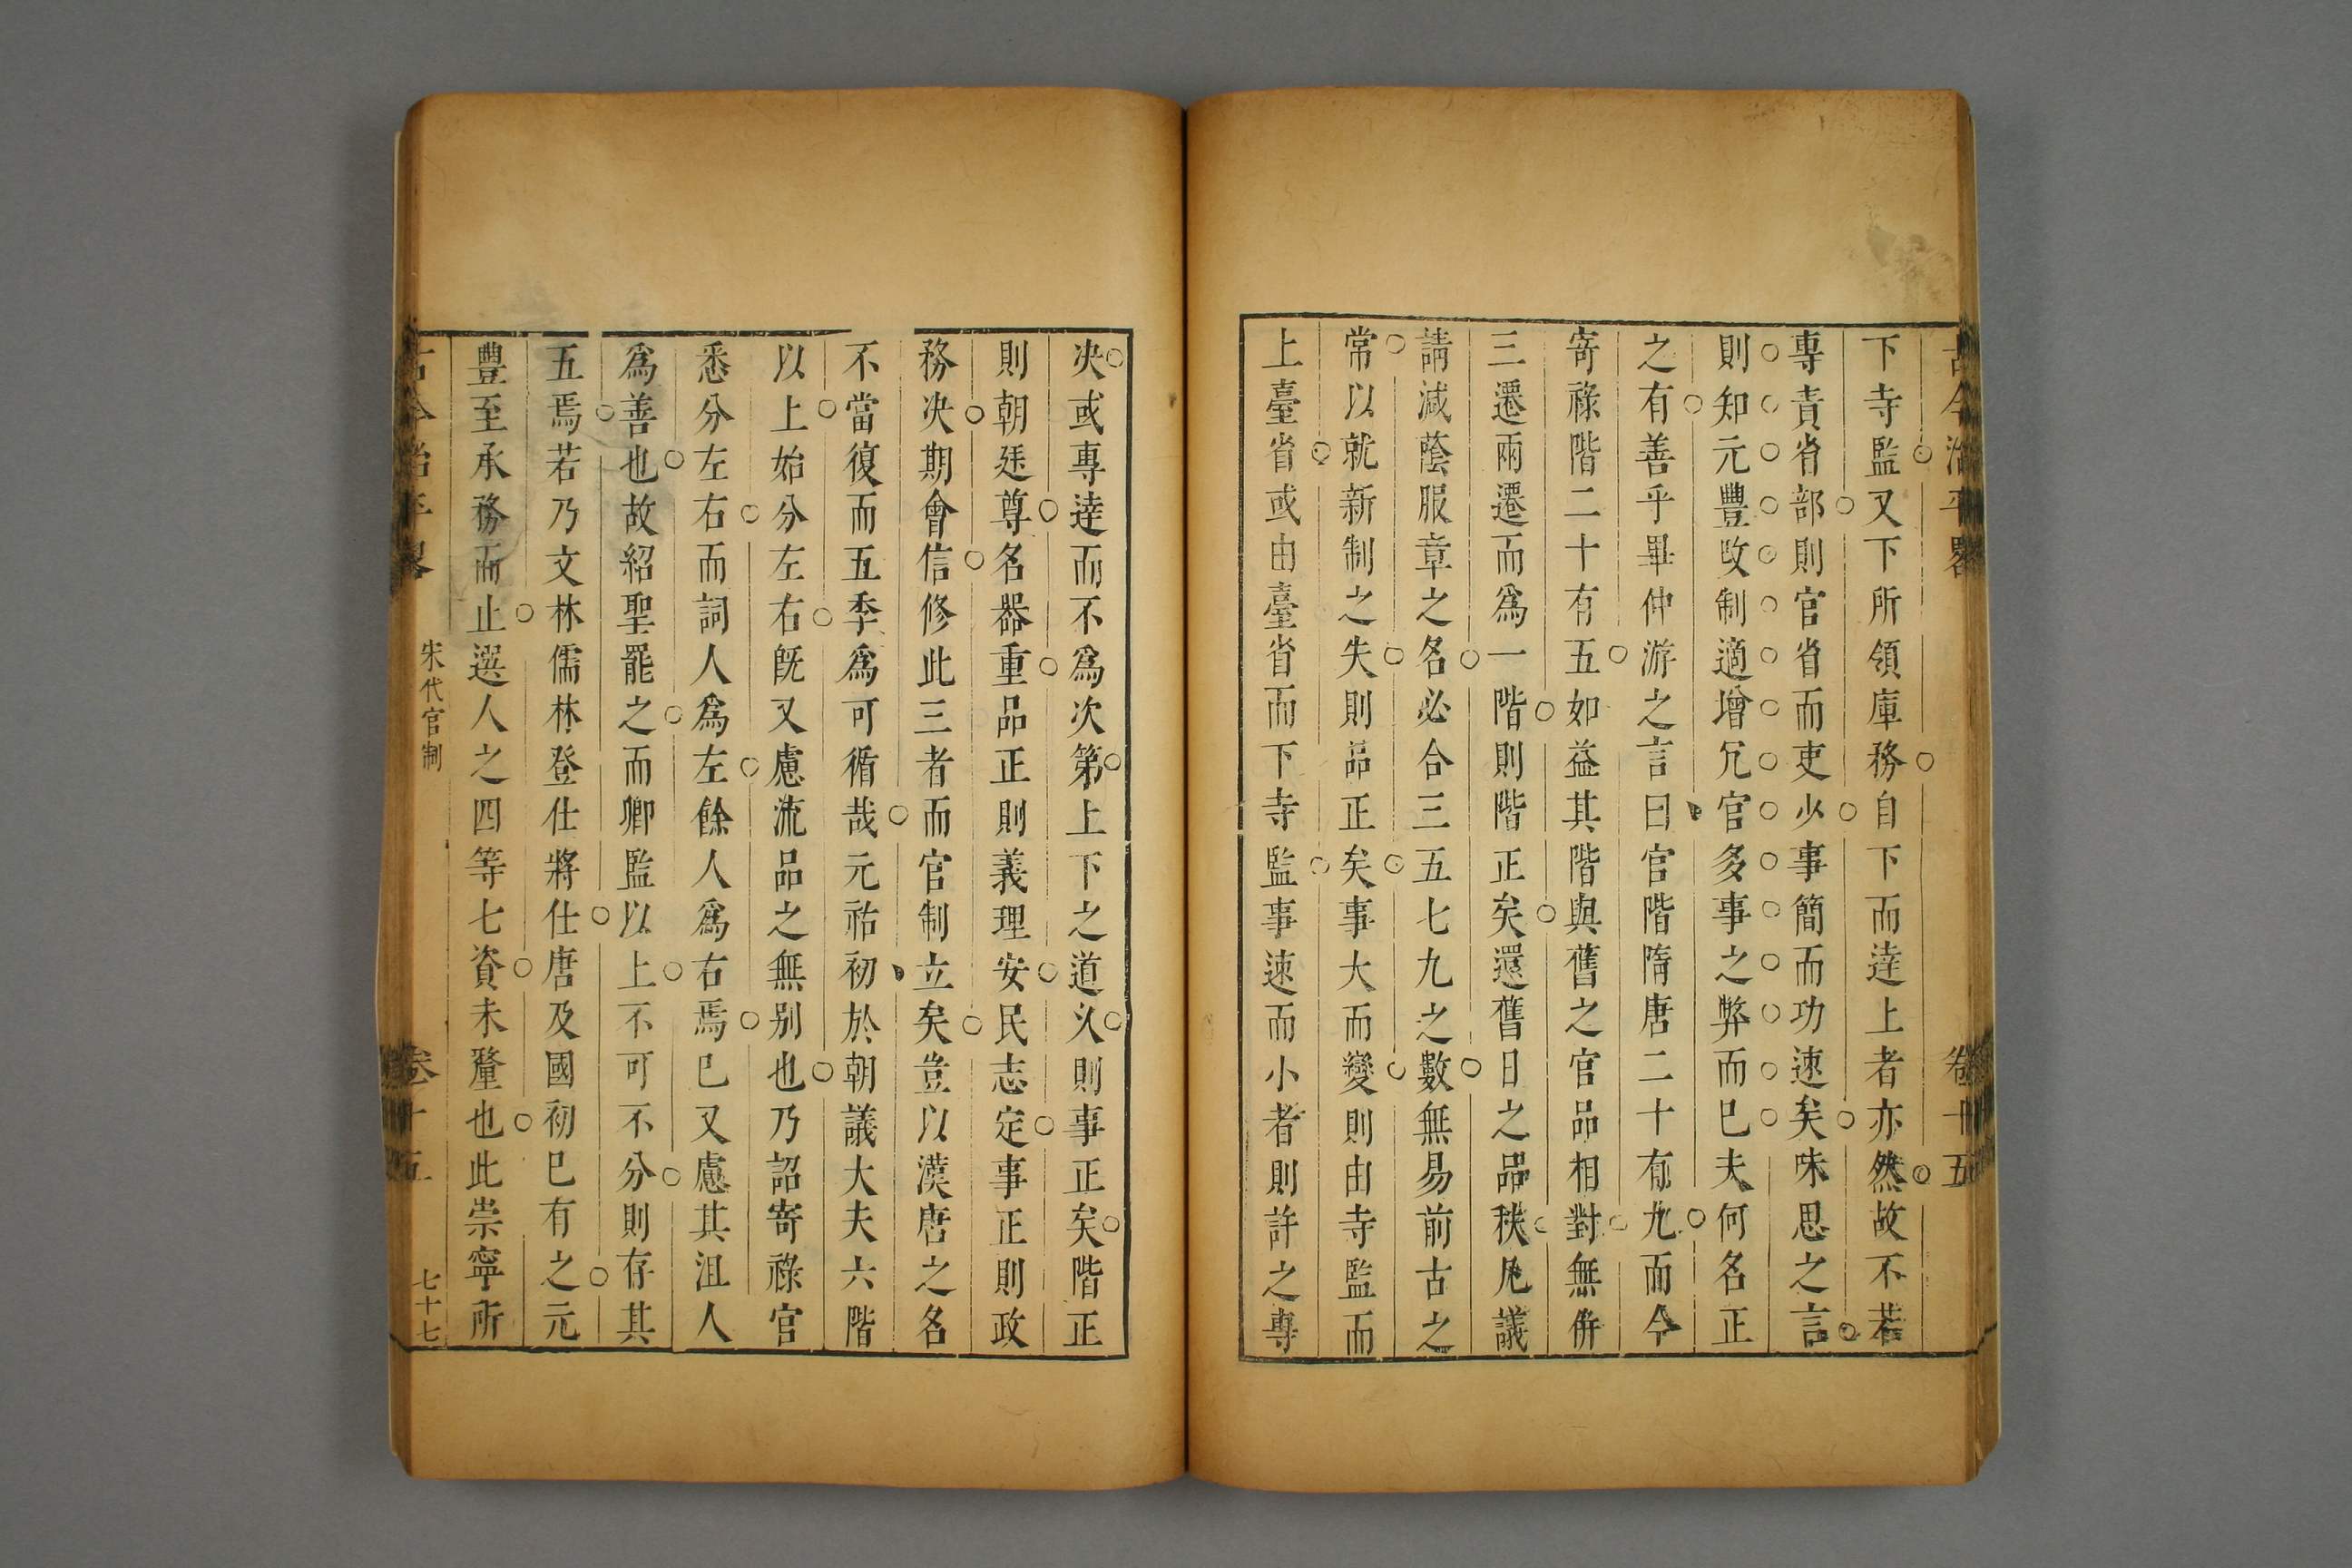 古今治平畧 卷十五
下寺監又下所領庫務自下而達上者亦然故不若
專責省部則官省而吏少事簡而功速矣味思之言
則知元豐改制適增冗官多事之弊而已夫何名正
之有善乎畢仲游之言曰官階隋唐二十有九而今
寄祿階二十有五如益其階與舊之官品相對無併
三遷兩遷而爲一階則階正矣還舊日之品秩凡議
請減蔭服章之名必合三五七九之數無易前古之
常以就新制之失則品正矣事大而變則由寺監而
上臺省或由臺省而下寺監事速而小者則許之專
决或專達而不爲次第上下之道乆則事正矣階正
則朝廷尊名器重品正則義理安民志定事正則政
務决期會信修此三者而官制立矣豈以漢唐之名
不當復而五季爲可循哉元祐初於朝議大夫六階
以上始分左右旣又慮流品之無别也乃詔寄祿官
悉分左右而詞人爲左餘人爲右焉已又慮其沮人
爲善也故紹聖罷之而卿監以上不可不分則存其
五焉若乃文林儒林登仕將仕唐及國初已有之元
豐至承務而止選人之四等七資未釐也此崇寧所
古今治平畧 宋代官制 卷十五 七十七